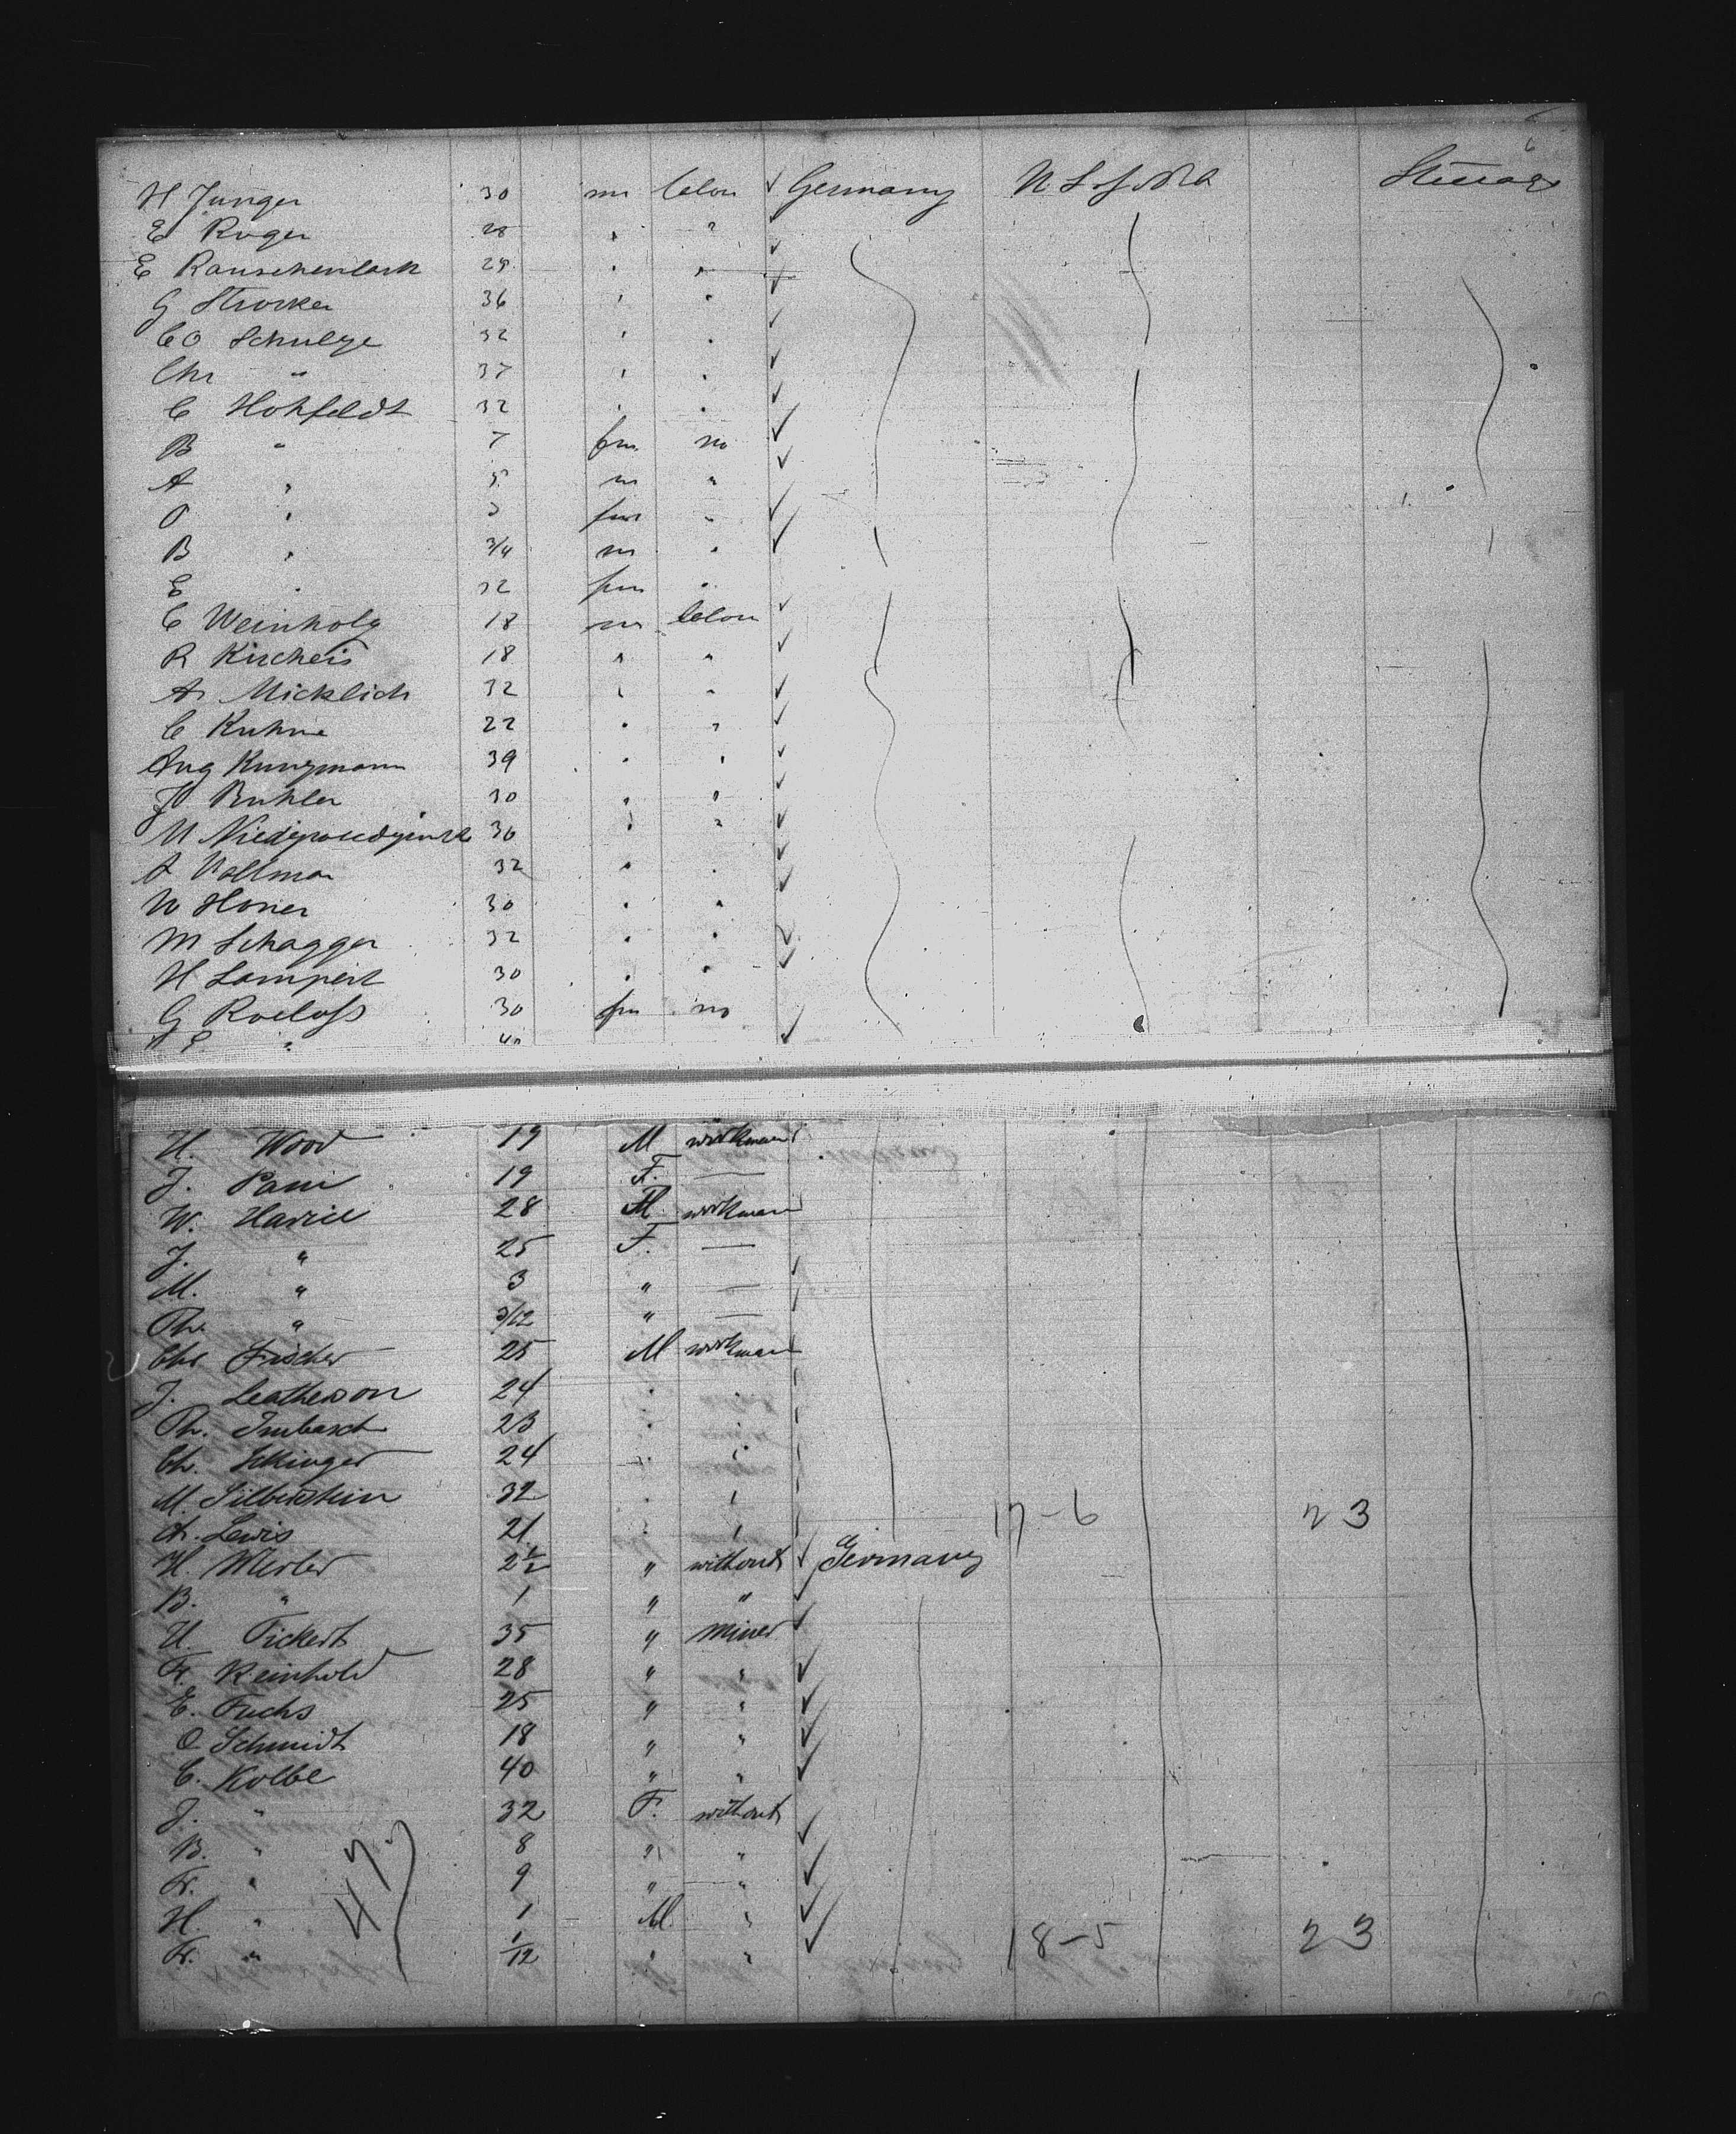 H Junger 30 m Clon ✓ Germany U. S. of N A Steerage
E Ruger 28 " " ✓
E Rauschenbach 29 " " ✓
G Strocker 36 " " ✓
C O Schulze 32 " " ✓
Chr " 37 " " ✓
C Hohfeldt 32 " " ✓
B " 7 fm no ✓
A " 5 m " ✓
O " 3 fm " ✓
B " 3/4 m " ✓
E " 32 fm "
C Weinholg 18 m Clon ✓
R Kircheis 18 " " ✓
A Micklich 32 " " ✓
C Kuhne 22 " " ✓
Aug Kunzmann 39 " " ✓
Buhler 30 " " ✓
30 " " ✓
A Vollmer 32 " " ✓
W Honer 30 " " ✓
M Schagger 32 " " ✓
H Lampert 30 " " ✓
G Roeloffs 30 fm no
" 40 ✓
H. Wood 19 M workman
J. Pani 19 F. —
W. Harrie 28 M. workman
J. " 25 F. —
M. " 3 " —
Th. " 3/12 " —
Chr Fischer 25 M workman
J. Leatherson 24 " "
Th. Imbasch 23 " "
Ch. 24 " "
M. Silberstein 32 " " 17-6 23
A. Lewis 21 " "
H. Mesler 2½ " without ✓ Germany
B. " 1 " " ✓
H. Fickert 35 " miner ✓
Fr. Reinhold 28 " " ✓
E. Fuchs 25 " " ✓
O Schmidt 18 " " ✓
C. Kolbe 40 " " ✓
J. " 32 F. without
B. " 8 " " ✓
Fr. " 9 " " ✓
H. " 1 M " ✓
Fr. " 1/12 " " ✓ 18-5 23
47